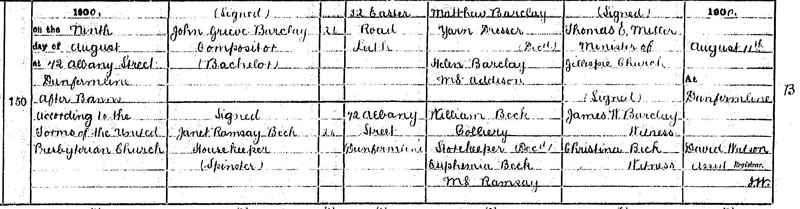 1900.
on the Ninth
day of August
at 72 Albany Street
Dunfermline
After Banns
according to the
Forms of the United
Presbyterian Church
150
(Signed)
John Grieve Barclay
Compositor
(Bachelor)
Signed
Janet Ramsay Beck
Housekeeper
(Spinster)
22 Easter
Road
Leith
72 Albany
Street
Dunfermline
Matthew Barclay
Yarn Dresser
(Decd)
Helen Barclay
MS Addison
William Beck
Colliery
Storekeeper (Decd)
Euphemia Beck
MS Ramsay
(Signed)
Thomas E. Miller
Minister of
Gillespie Church
(Signed)
James W. Barclay
Witness
Christina Beck
Witness
1900.
August 11th
At
Dunfermline
David Wilson
Assist Registrar.
73